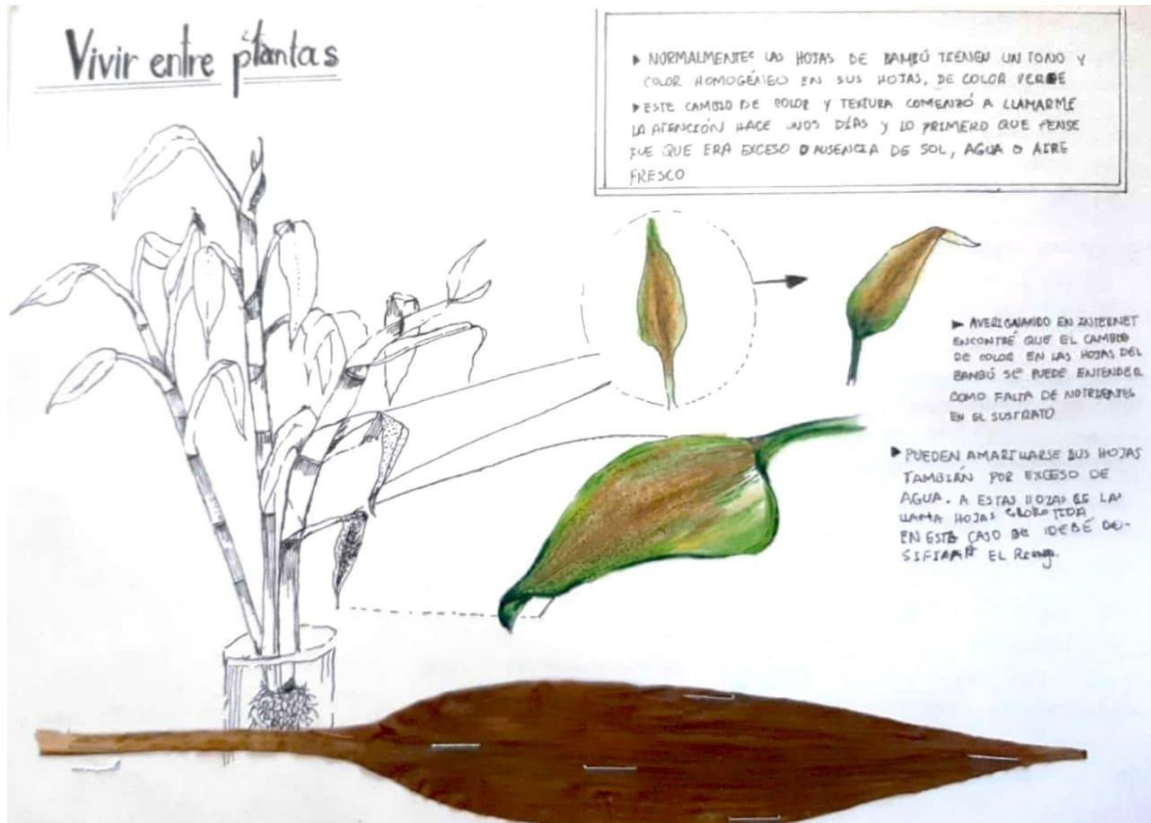 Vivir entre plantas
▸ NORMALMENTE LAS HOJAS DE BAMBÚ TIENEN UN TONO Y
COLOR HOMOGÉNEO EN SUS HOJAS, DE COLOR VERDE
▸ ESTE CAMBIO DE COLOR Y TEXTURA COMENZÓ A LLAMARME
LA ATENCIÓN HACE UNOS DÍAS Y LO PRIMERO QUE PENSE
FUE QUE ERA EXCESO O AUSENCIA DE SOL, AGUA O AIRE
FRESCO
▸ AVERIGUANDO EN INTERNET
ENCONTRÉ QUE EL CAMBIO
DE COLOR EN LAS HOJAS DEL
BAMBÚ SE PUEDE ENTENDER
COMO FALTA DE NUTRIENTES
EN EL SUSTRATO
▸ PUEDEN AMARILLARSE SUS HOJAS
TAMBIÉN POR EXCESO DE
AGUA. A ESTAS HOJAS SE LAS
LLAMA HOJAS
EN ESTE CASO SE DEBE
EL